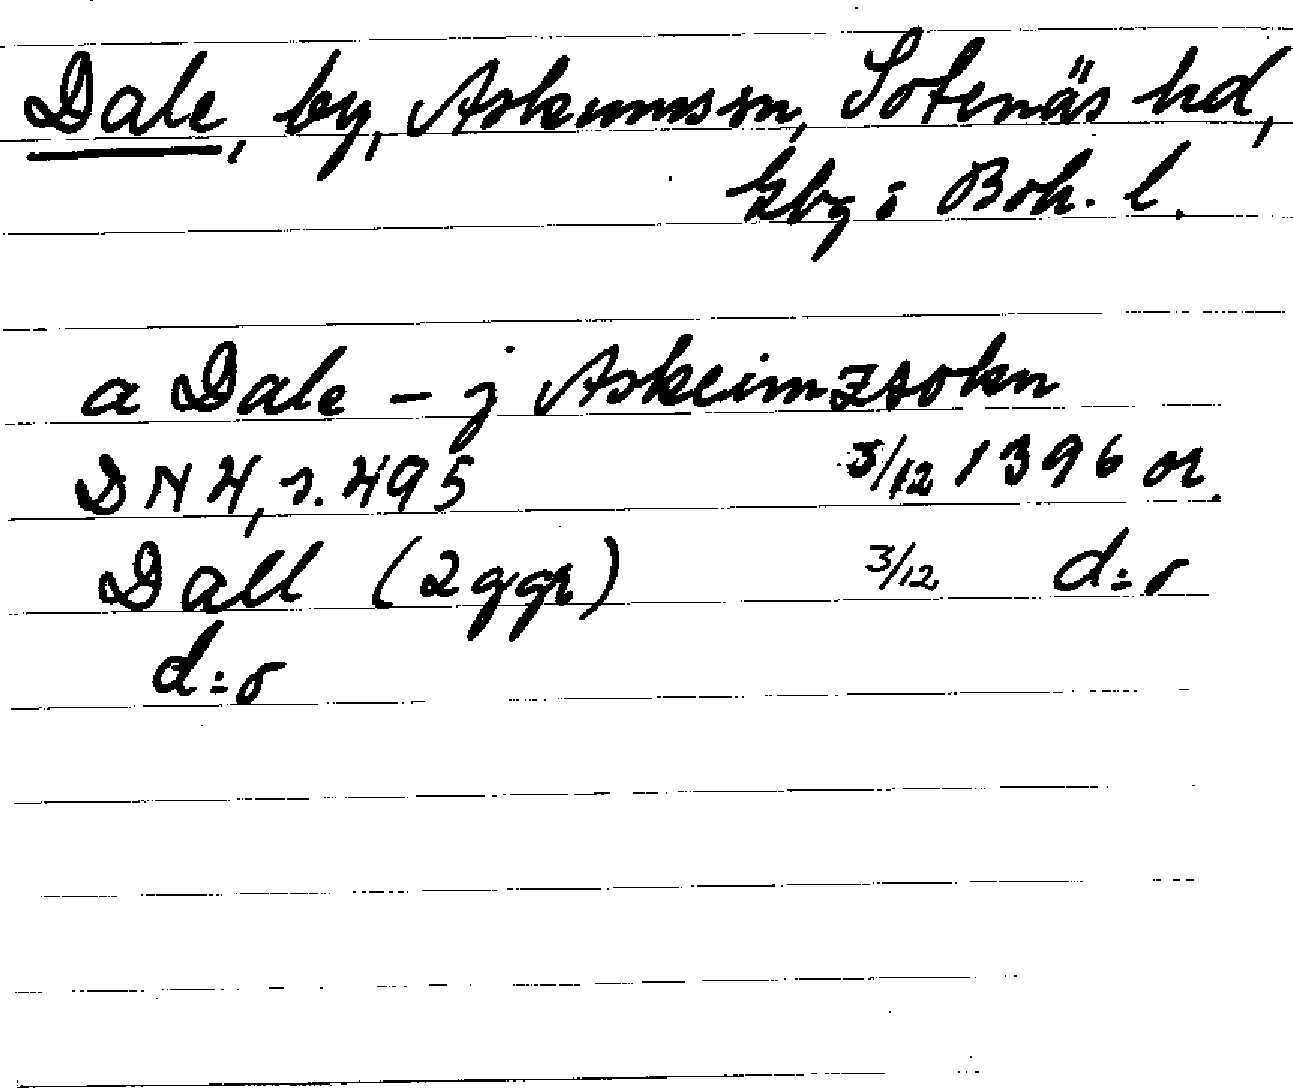 Dale, by, Askums sn, Sotenäs hd,
Gbg o Boh. l.
a Dale – j Askeimzsokn
DN 4, s. 495 3/12 1396 or.
Dall (2 ggr) 3/12 d:o
d:o